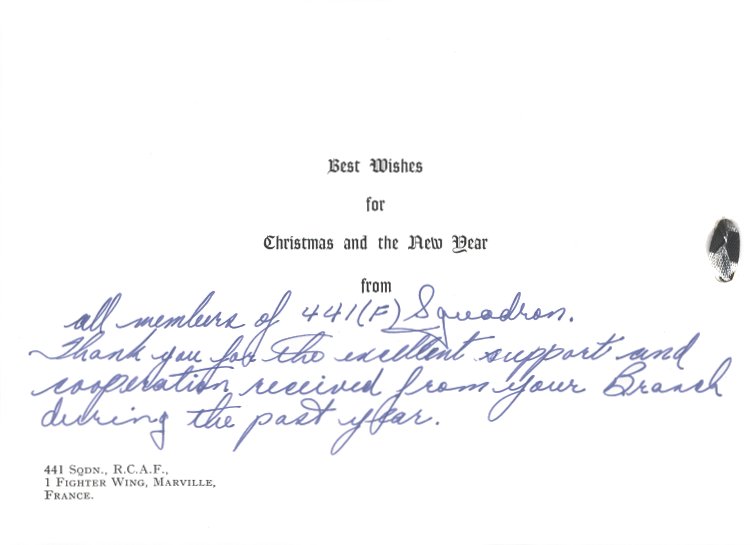 Best Wishes
for
Christmas and the New Year
from
all members of 441(F) Squadron.
Thank you for the excellent support and
cooperation received from your Branch
during the past year.
441 SQDN., R.C.A.F.,
1 FIGHTER WING, MARVILLE,
FRANCE.